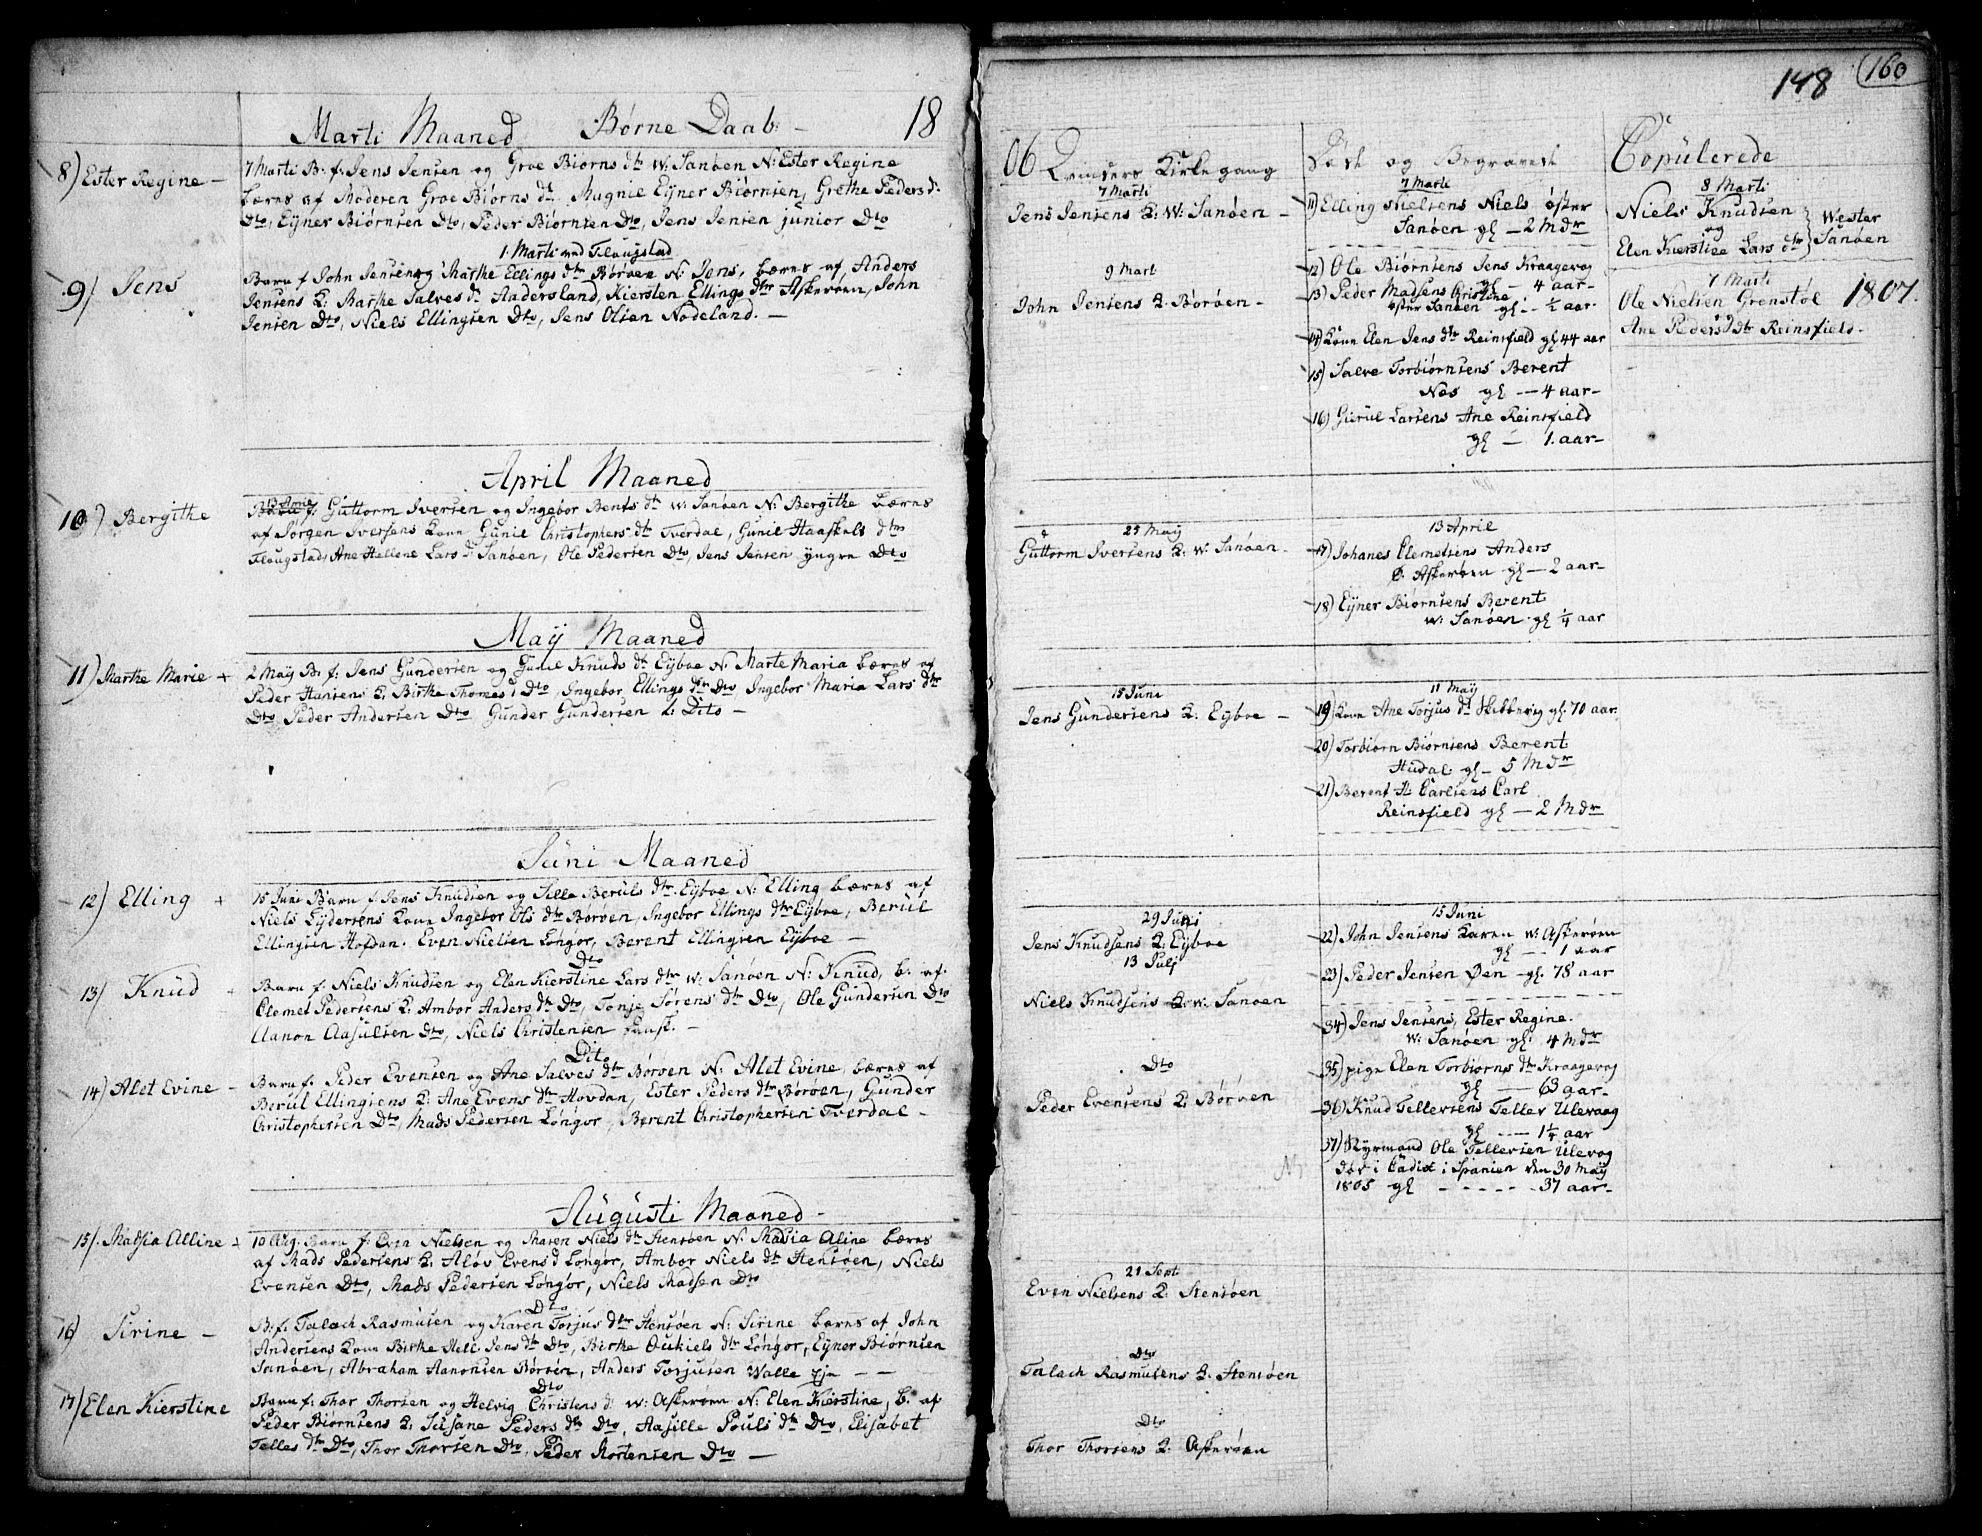 Marti Maaned Børne Daab. 18
8) Ester Regine — 7 Marti B. f. Jens Jensen og Groe Biørns dtr W. Sanøen N: Ester Regine
bærns af Moderen Groe Biørns dtr Magnie Eÿner Biørnsen, Grethe Peders dr
Dto, Eÿner Biørnsen Dto, Peder Biørnsen Dto, Jens Jensen junior Dto
1 Marti ved Flougstad
9) Jens Barn f John Jensen og Marthe Ellings dtr Børøen N: Jens, bærns af Anders
Jensens K: Marthe Salves dr Aadersland, Kiersten Ellings dtr Askerøen, John
Jensen Dto, Niels Ellingsen Dto, Jens Olsen Nodeland. —
April Maaned
10) Bergithe Barn f. Guttorm Iversen og Ingebor Bents dtr W: Sanøen N: Bergithe bærns
af Jørgen Iversens Kone Gunil Christophers dtr Tverdal, Gunil Haafkels dtr
Flougstad, Ane Hellene Lars dr Sanøen, Ole Pedersen Dto, Jens Jensen yngre Dto
Maÿ Maaned
11) Marthe Marie + 2 Maÿ B. f: Jens Gundersen og Gunil Knuds dtr Eÿboe N: Marte Maria bærns af
Peder Hansens K: Birthe Thomes d Dto, Ingebor Ellings dtr Dto, Ingebor Maria Lars dtr
Dto, Peder Andersen Dto Gunder Gundersen Dito —
Juni Maaned
12) Elling + 15 Juni Barn f. Jens Knudsen og Sille Beruls dtr. Eÿboe N: Elling bærns af
Niels Eÿdersens Kone Ingebor Ols dtr Børøen, Ingebor Ellings dtr Eÿboe, Berul
Ellingsen Hofdan. Even Nielsen Longør, Berent Ellingsen Eÿboe —
Dto
13) Knud Barn f. Niels Knudsen og Elen Kierstine Lars dtr W: Sanøen N: Knud, b. af.
Clemet Pedersens K: Ambor Anders dtr Dto, Tonje Sørens dtr Dto, Ole Gundersen Dto
Aanon Aasulsen Dto, Niels Christensen
Dito
14) Alet Evine — Barn f. Peder Evensen og Ane Salves dtr Børøen N: Alet Evine bærns af
Berul Ellingsens K: Ane Evens dtr Hovdan, Ester Peders dtr Børøen, Gunder
Christophersen Dto, Mads Pedersen Longør, Berent Christophersen Tverdal —
Augusti Maaned —
15) Madsia Alline 10 Aug. Barn f: Even Nielsen og Maren Niels dtr Stensøen N: Madsia Aline bærns
af Mads Pedersens K: Aløv Evens d Longør, Ambor Niels dtr Stensøen, Niels
Evensen Dto, Mads Pedersen Longør, Niels Madsen Dto
Dto
16) Sirine — B. f. Talach Rasmusen og Karen Torjus dtr Stensøen N: Sirine bærns af John
Andersens Kone Birthe Jens dtr Dto, Birthe Oukiels dtr Longør, Eÿner Biørnsen
Sanøen, Abraham Aanonsen Børøen, Anders Torjusen Walle
Dto
17) Elen Kierstine Barn f: Thor Thorsen og Helvig Christens d: W: Askerøen N: Elen Kierstine, b. af
Peder Biørnsens K: Susane Peders dtr Dto, Aasille Pouls dtr Dto, Elisabet
Telles dtr Dto, Thor Thorsen Dto, Peder Mortensen Dto —
148 160
06 Qvinders Kirkegang
7 Marti
Jens Jensens K: W: Sanøen —
9 Mart
John Jensens K: Børøen —
25 Maÿ
Guttorm Iversens K: W: Sanøen —
15 Juni
Jens Gundersens K: Eÿboe —
29 Juni
Jens Knudsens K: Eÿboe
13 Julj
Niels Knudsens K: W: Sanøen
Dto
Peder Evensens K: Børøen
21 Sept
Even Nielsens K: Stensøen
Dto
Talach Rasmusens K: Stensøen
Dto
Thor Thorsens K: Askerøen
Død og Begravet
7 Marti
11) Elling Nielsens Niels øster
Sanøen gl — 2 Mdr
12) Ole Biørnsens Jens Kraagevog
gl — 4 aar —
13) Peder Madsens Cristine
øster Sanøen gl — ½ aar
14) Kone Elen Jens dtr Reinsfield gl 44 aar
15) Salve Torbiørnsens Berent
Næs gl — 4 aar —
16) Gierul Larsens Ane Reinsfield
gl — 1. aar —
13 April
17) Johanes Clemetsens Anders
Ø. Askerøen gl — 2 aar —
18) Eÿner Biørnsens Berent
W: Sanøen gl ¼ aar
11 Maÿ
19) Kone Ane Torjus dr Skibbevig gl: 70 aar.
20) Torbiørn Biørnsens Berent
Hudal gl — 5 Mdr
21) Berent H: Carlsens Carl
Reinsfield gl — 2 Mdr
15 Juni
22) John Jensens Karen W: Askerøen
gl — 1 aar
23) Peder Jensen Øen gl. 78 aar
34) Jens Jensens, Ester Regine.
W: Sanøen gl: 4 Mdr
35) pige Elen Torbiørns dtr Kraagevog
gl — 63 aar —
36) Knud Tellersens Tellev Ulevaag
gl — 1¼ aar
37) Styrmand Ole Tellefsen Ulevog
døv i Cadix i Spanien den 30 Maÿ
1805 gl — 37 aar —
Copulerede
8 Marti
Niels Knudsen
og
Elen Kierstine Lars dtr } Wester Sanøen
7 Marti
Ole Nielsen Grønstøl 1807.
Ane Peders dtr Reinsfield —